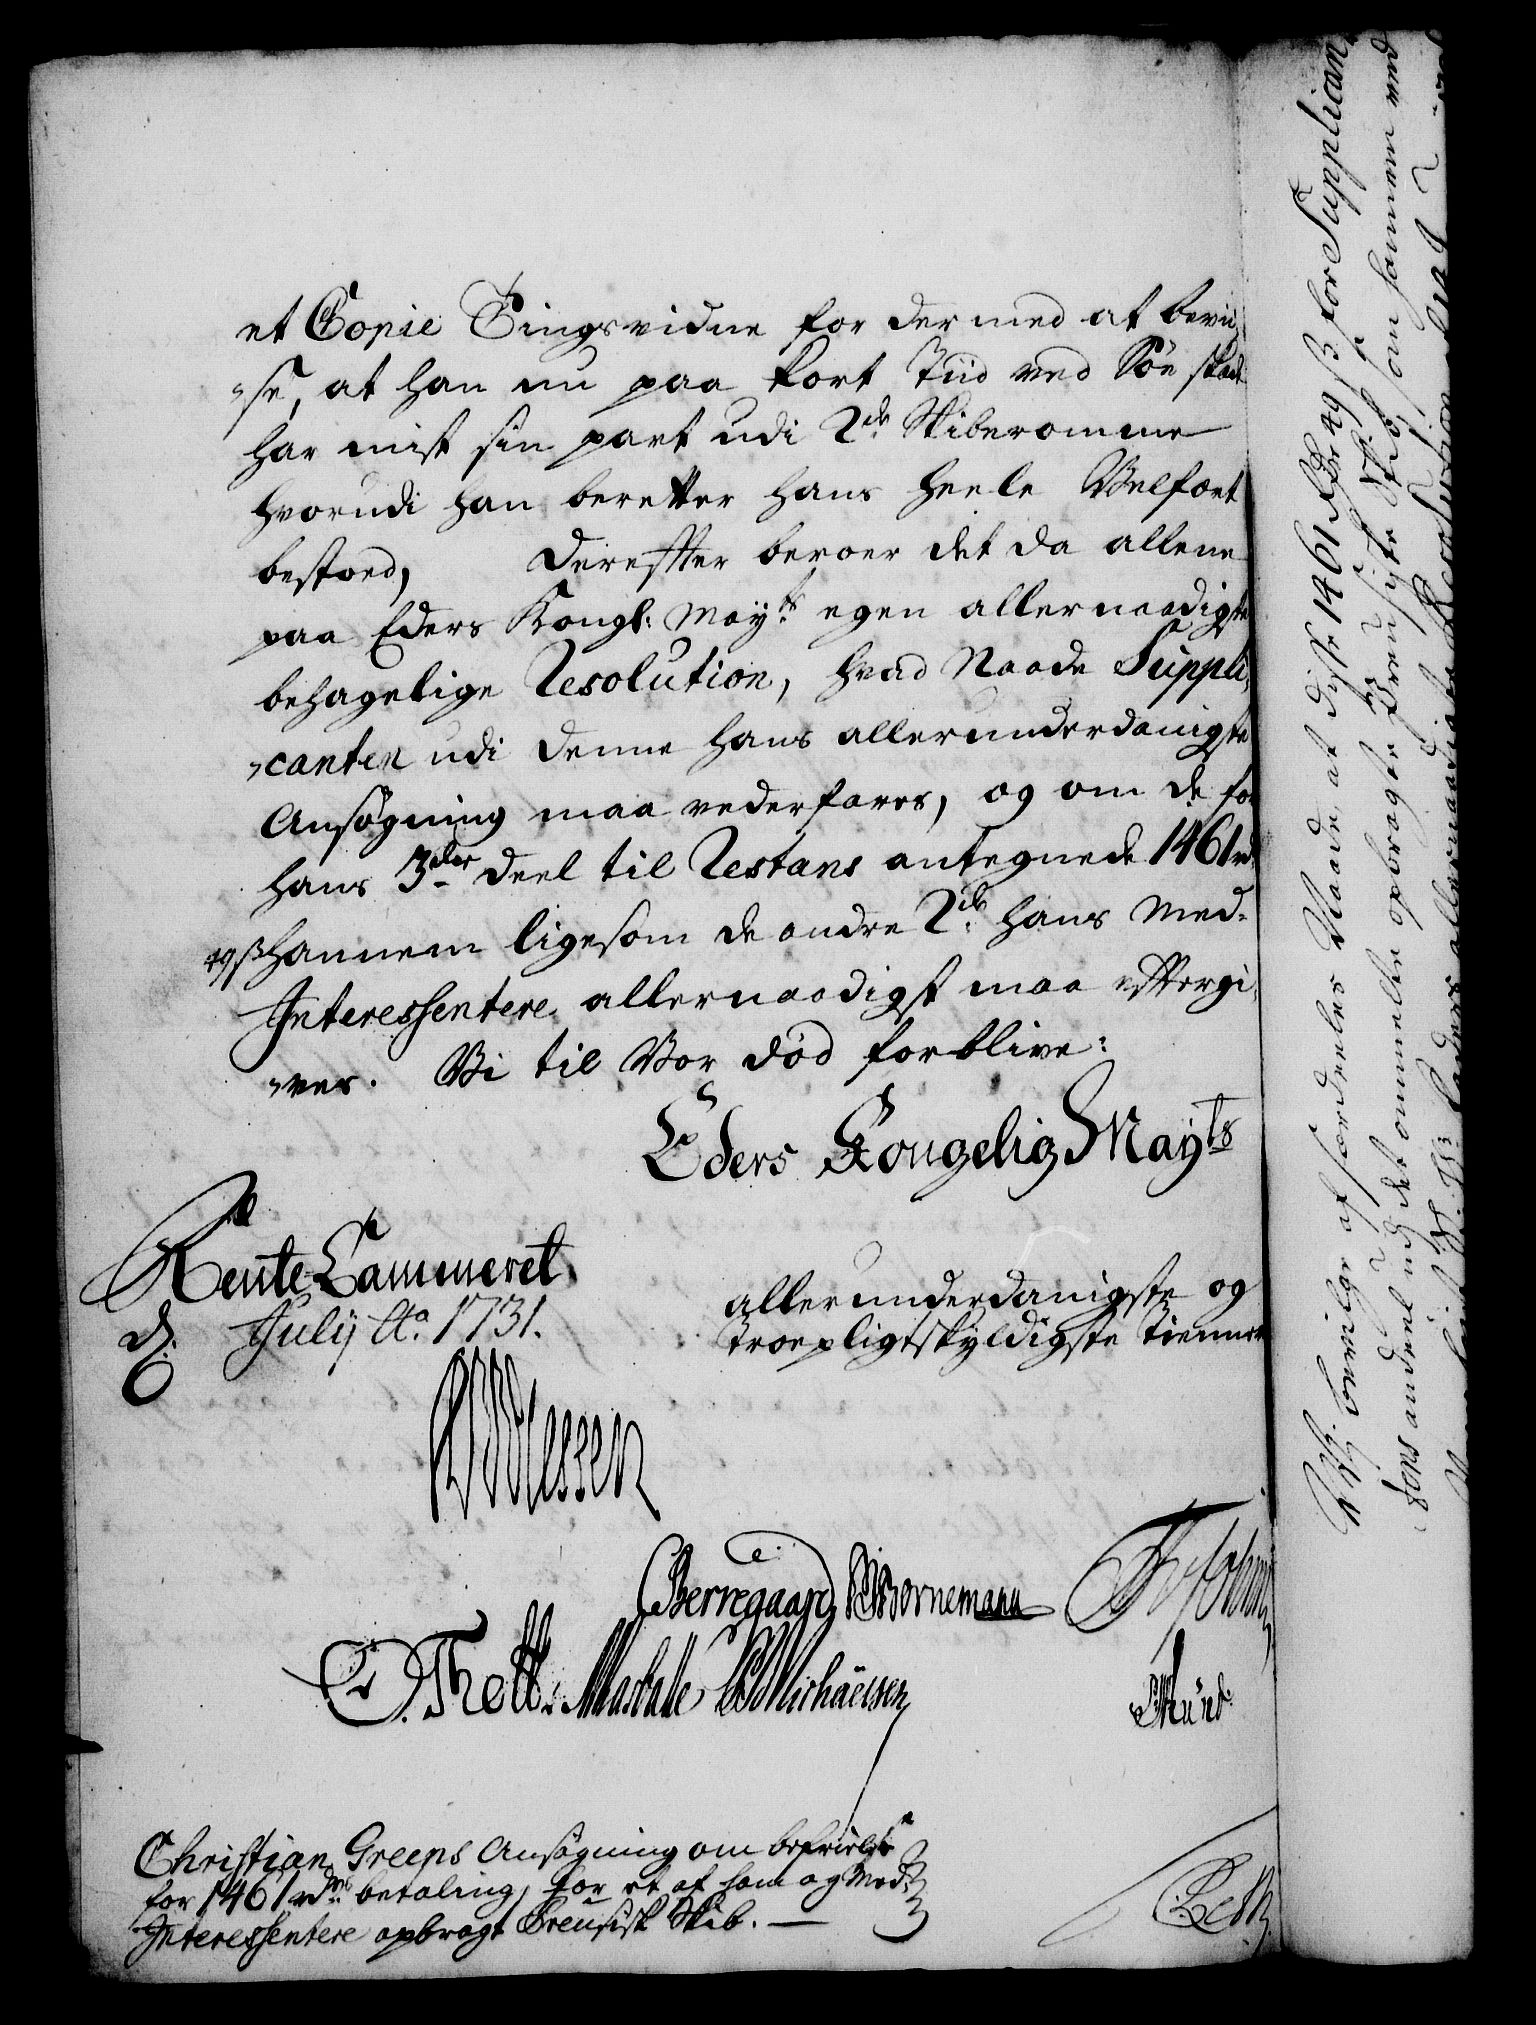 et Copie Tingsvidne for dermed at bevii,
,,se, at han nu paa kort Tiid ved Söe skade
har mist sin part udi 2de Skiberomme
hvorudi han beretter hans heele Velfært
bestoed, Derefter beroer det da allene
paa Eders Kongl: Mayts egen allernaadigste
behagelige Resolution, hvad Naade Suppli,
,,canten udi denne hans allerunderdanigste
Ansögning maa vederfares, og om de for
hans 3die deel til Restans antegnede 1461 rd
49 ß hannem ligesom de andre 2de hans Med-
Interessentere allernaadigst maa eftergi,
,,ves. Vi til Vor död forblive:
Eders Kongelig Mayts
Rente Cammeret
d. July Ao. 1731.
allerunderdanigste og
troepligtskyldigste tienere
Berregaard Bornemann
O. Thott. Michaelsen
Christian Greeps Ansögning om befrielse
for 1461 rdrs betaling, for et af ham og Med-
Interessentere opbragt Preusisk Skib.
Vi bevilge af særdeeles Naade, at disse 1461 rdr 49 ß for Supplican,
,,tens andeel udj det ommelte opbragte Preusiske Skib, maa hannem ved
allernaadigste Resolution